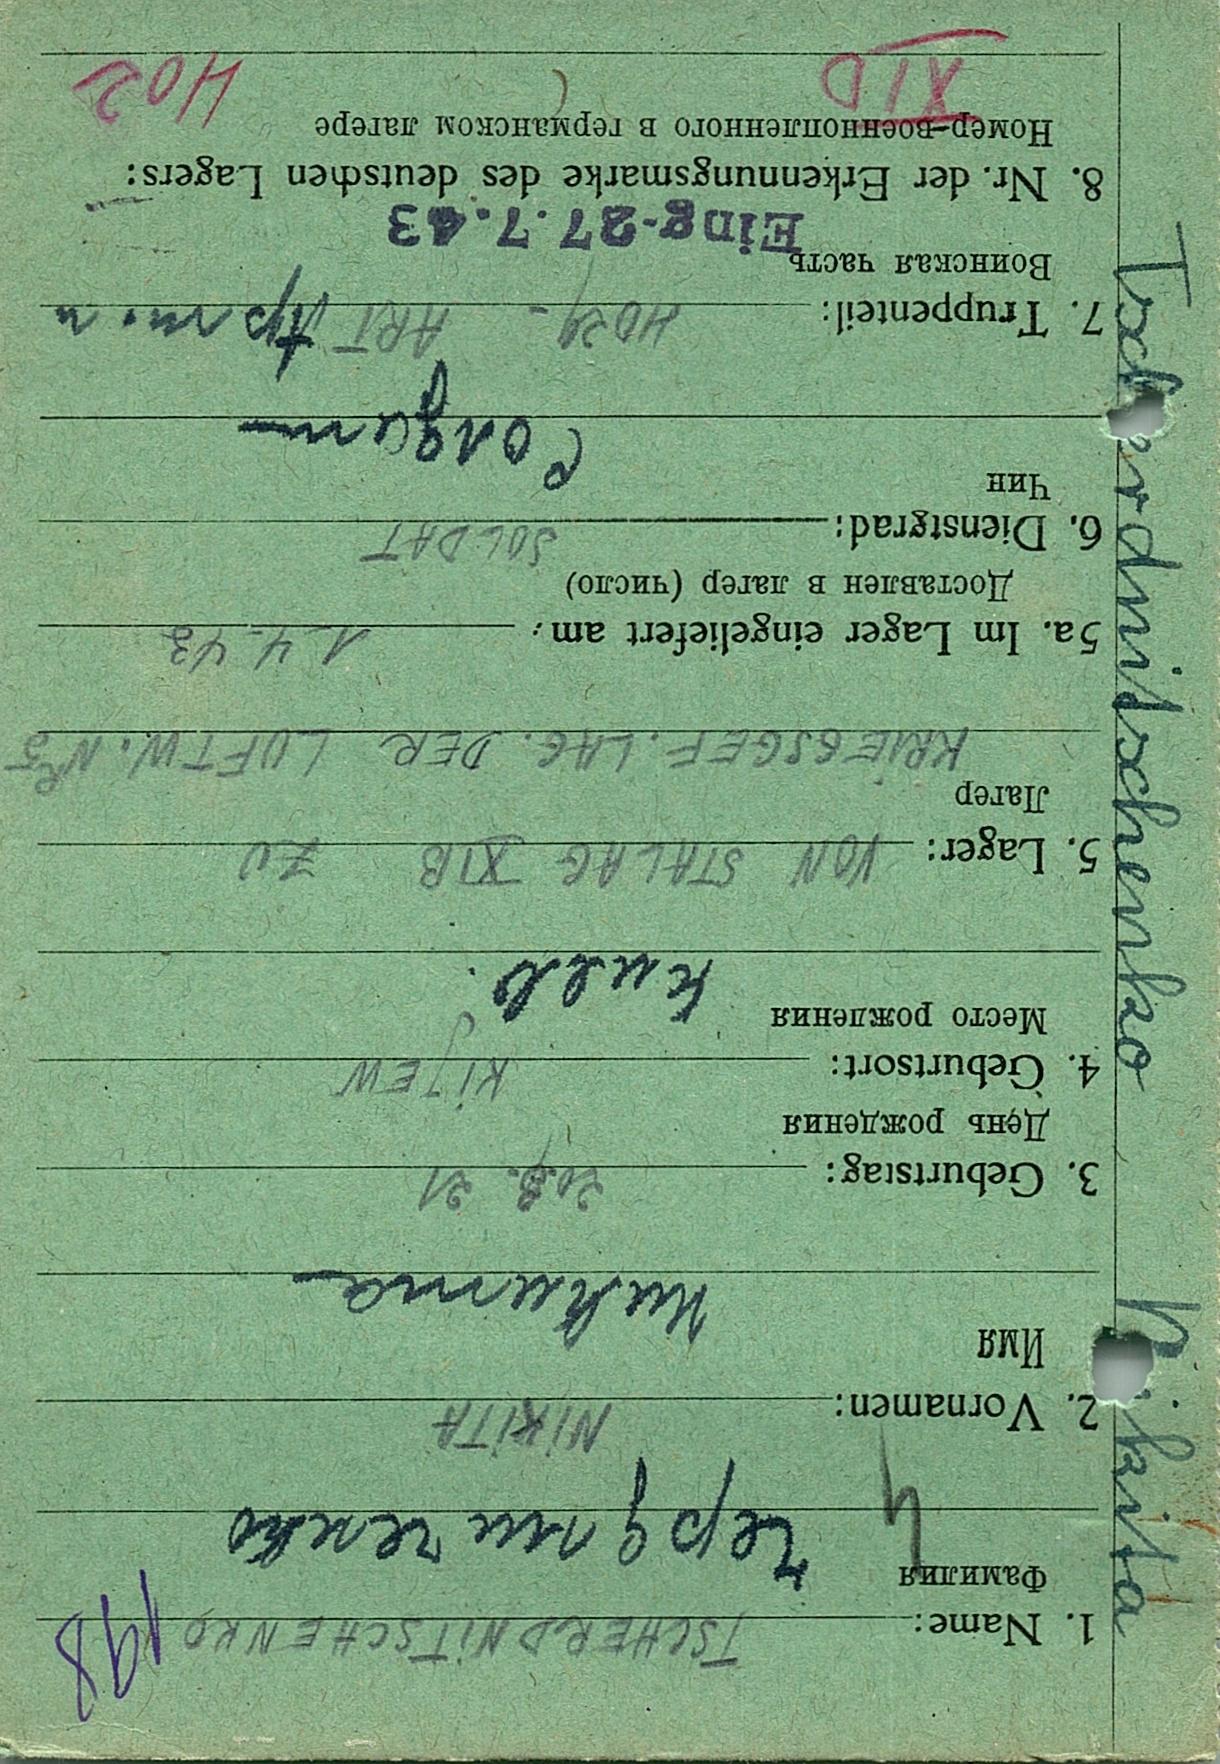 198
1. Name: TSCHERDNITSCHENKO
Фамилия
Ч
Чердниченко
2. Vornamen: NIKITA
Имя
Никита
3. Geburtstag: 21
День рождения
4. Geburtsort: KIJEW
Место рождения
Киев.
5. Lager: VON STALAG XIB ZU
Лагер
KRIEGSGEF. LAG. DER LUFTW. NR 5
5a. Im Lager eingeliefert am: 1.4.43
Доставлен в лагер (число)
6. Dienstgrad: SOLDAT
Чин
Солдат
7. Truppenteil: ART
Воинская часть
Eing. 27.7.43
8. Nr. der Erkennungsmarke des deutschen Lagers:
Номер военнопленного в германском лагере
XID 402
Tscherdnitschenko Nikita